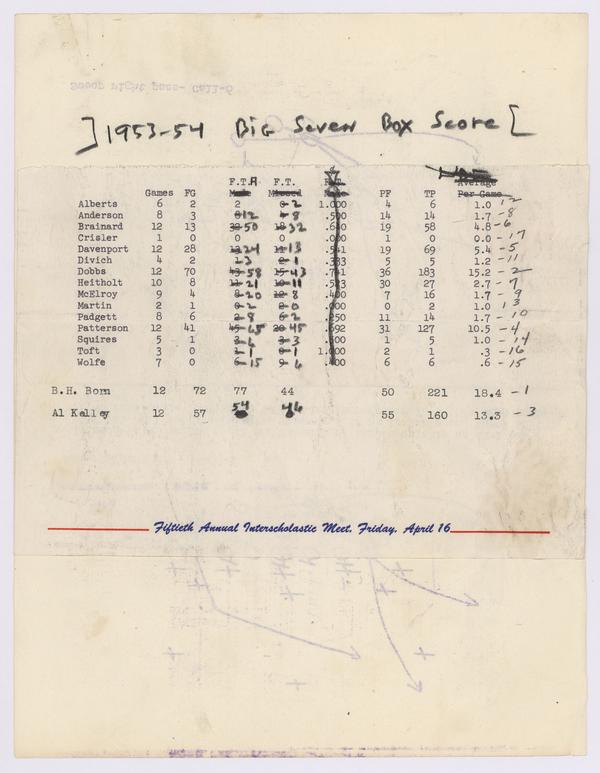 ]1953-54 Big Seven Box Score[
F.T.A F.T. Average
Games FG Missed PF TP Per Game
Alberts 6 2 2 2 1.000 4 6 1.0 12
Anderson 8 3 12 8 .500 14 14 1.7 -8
Brainard 12 13 50 32 .640 19 58 4.8 -6
Crisler 1 0 0 0 .000 1 0 0.0 -17
Davenport 12 28 24 13 .541 19 69 5.4 -5
Divich 4 2 3 1 .333 5 5 1.2 -11
Dobbs 12 70 58 43 .741 36 183 15.2 -2
Heitholt 10 8 21 11 .523 30 27 2.7 -7
McElroy 9 4 20 8 .400 7 16 1.7 -9
Martin 2 1 2 0 .000 0 2 1.0 13
Padgett 8 6 8 2 .250 11 14 1.7 -10
Patterson 12 41 65 45 .692 31 127 10.5 -4
Squires 5 1 6 3 .500 1 5 1.0 -14
Toft 3 0 1 1 1.000 2 1 .3 -16
Wolfe 7 0 15 6 .400 6 6 .6 -15
B.H. Born 12 72 77 44 50 221 18.4 -1
Al Kelley 12 57 54 46 55 160 13.3 -3
Fiftieth Annual Interscholastic Meet, Friday, April 16